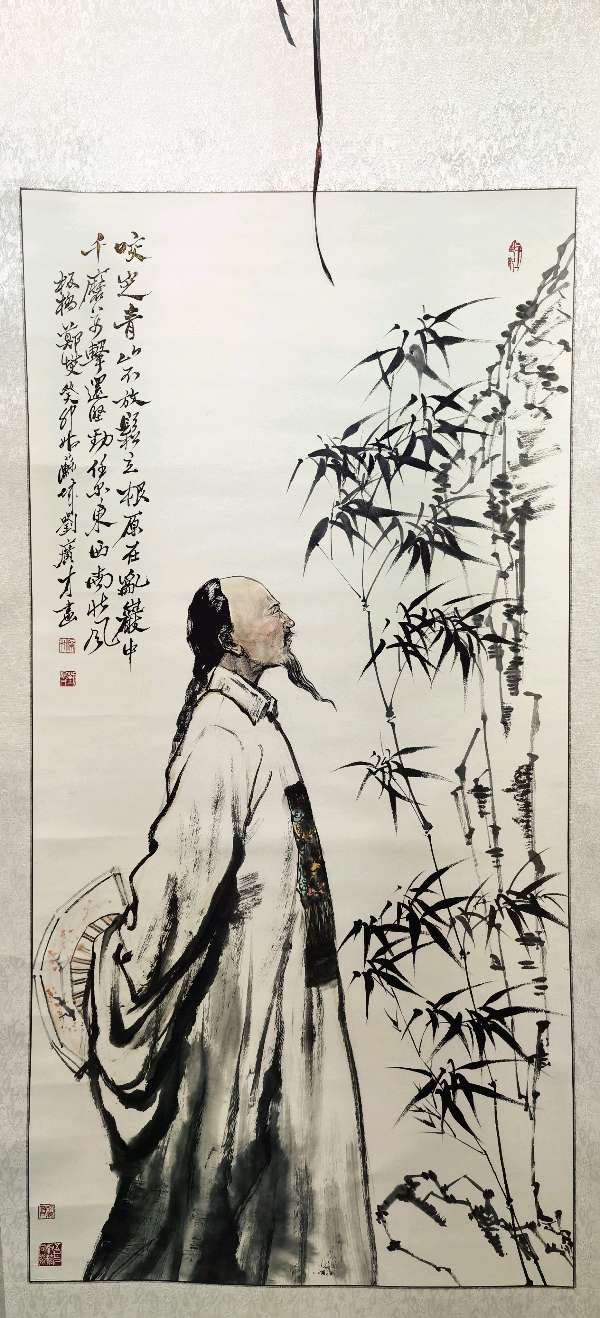 咬定青山不放鬆立根原在亂巖中
千磨万擊還堅勁任尔東西南北风
板橋鄭燮癸卯 劉廣才畫